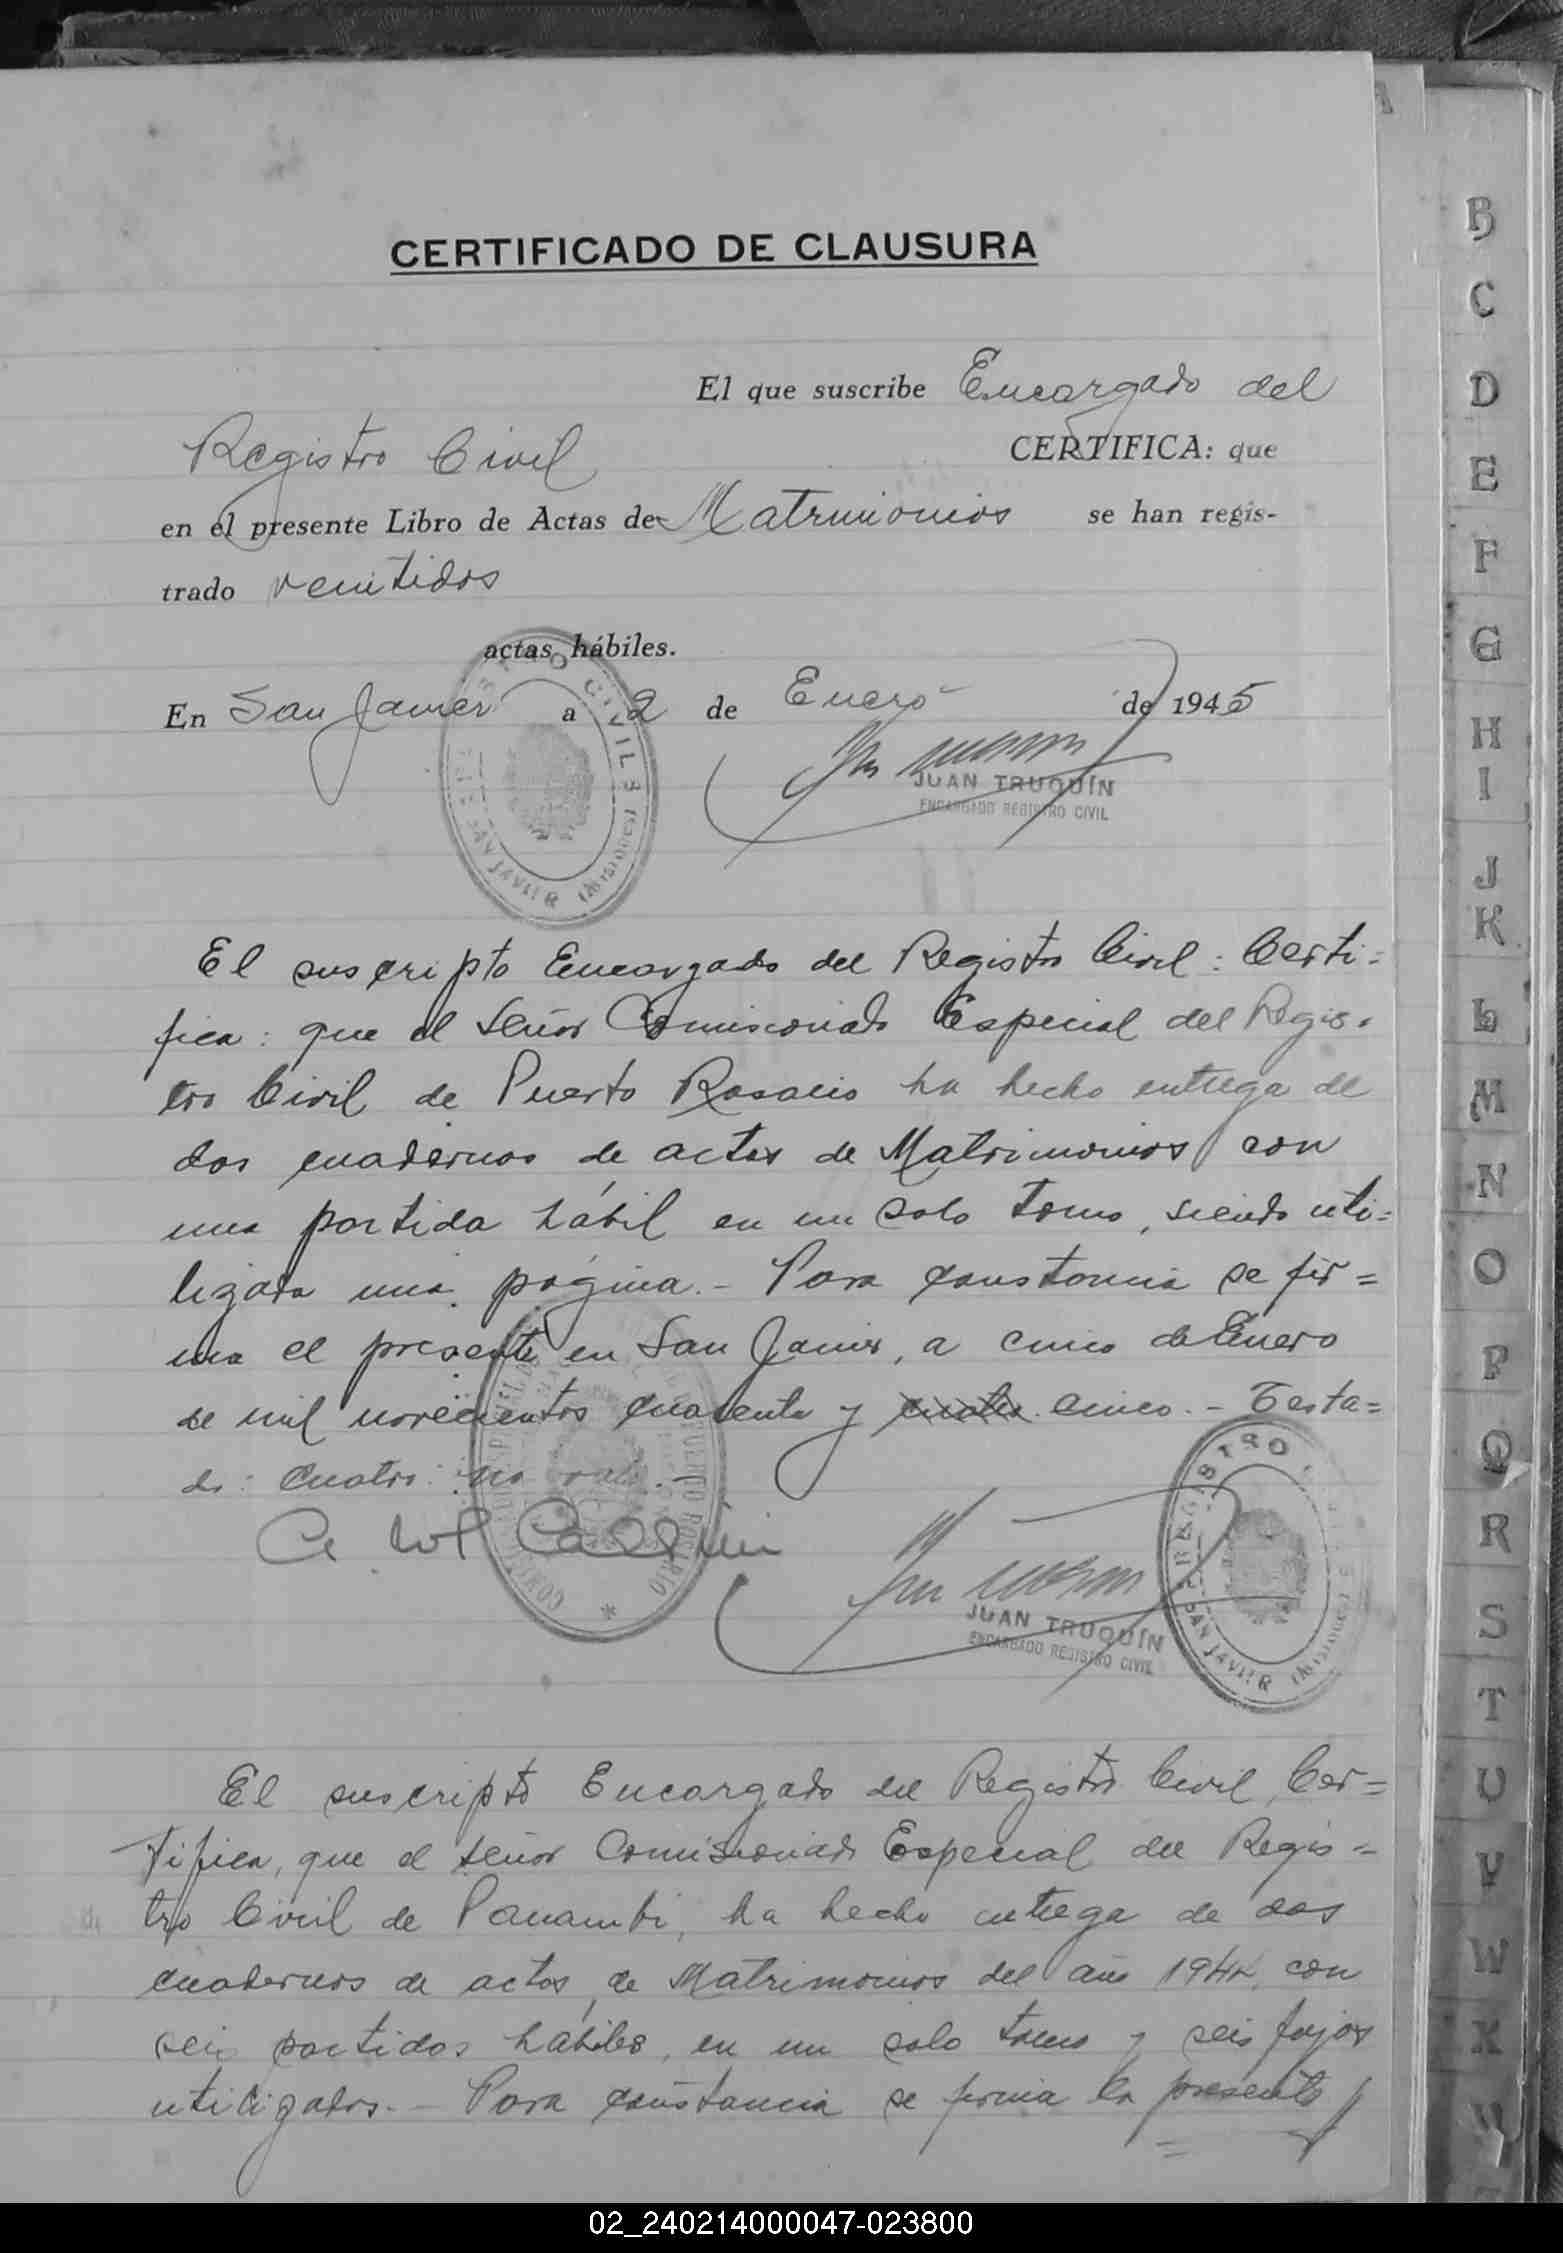 CERTIFICADO DE CLAUSURA
El que suscribe Encargado del
Registro Civil CERTIFICA: que
en el presente Libro de Actas de Matrimonios se han regis-
trado veintidos
actas hábiles.
En San Javier a 2 de Enero de 1945
JUAN TRUQUÍN
ENCARGADO REGISTRO CIVIL
REGISTRO CIVIL
SAN JAVIER (Misiones)
El suscripto Encargado del Registro Civil: Certi=
fica: que el señor Comisionado Especial del Regis=
tro Civil de Puerto Rosario ha hecho entrega de
dos cuadernos de actas de Matrimonios con
una partida hábil en un solo tomo, siendo uti=
lizada una página.- Para constancia se fir=
ma el presente en San Javier, a cinco de Enero
de mil novecientos cuarenta y cuatro cinco.- Testa=
do: cuatro: no vale.-
PUERTO ROSARIO
JUAN TRUQUÍN
ENCARGADO REGISTRO CIVIL
REGISTRO
SAN JAVIER (Misiones)
El suscripto Encargado del Registro Civil, Cer=
tifica, que el señor Comisionado Especial del Regis=
tro Civil de Panambi, ha hecho entrega de dos
cuadernos de actas de Matrimonios del año 1944, con
seis partidas hábiles, en un solo tomo y seis fojas
utilizadas.- Para constancia se firma la presente
A
B
C
D
E
F
G
H
I
J
K
L
M
N
O
P
Q
R
S
T
U
V
W
X
Y
02_240214000047-023800